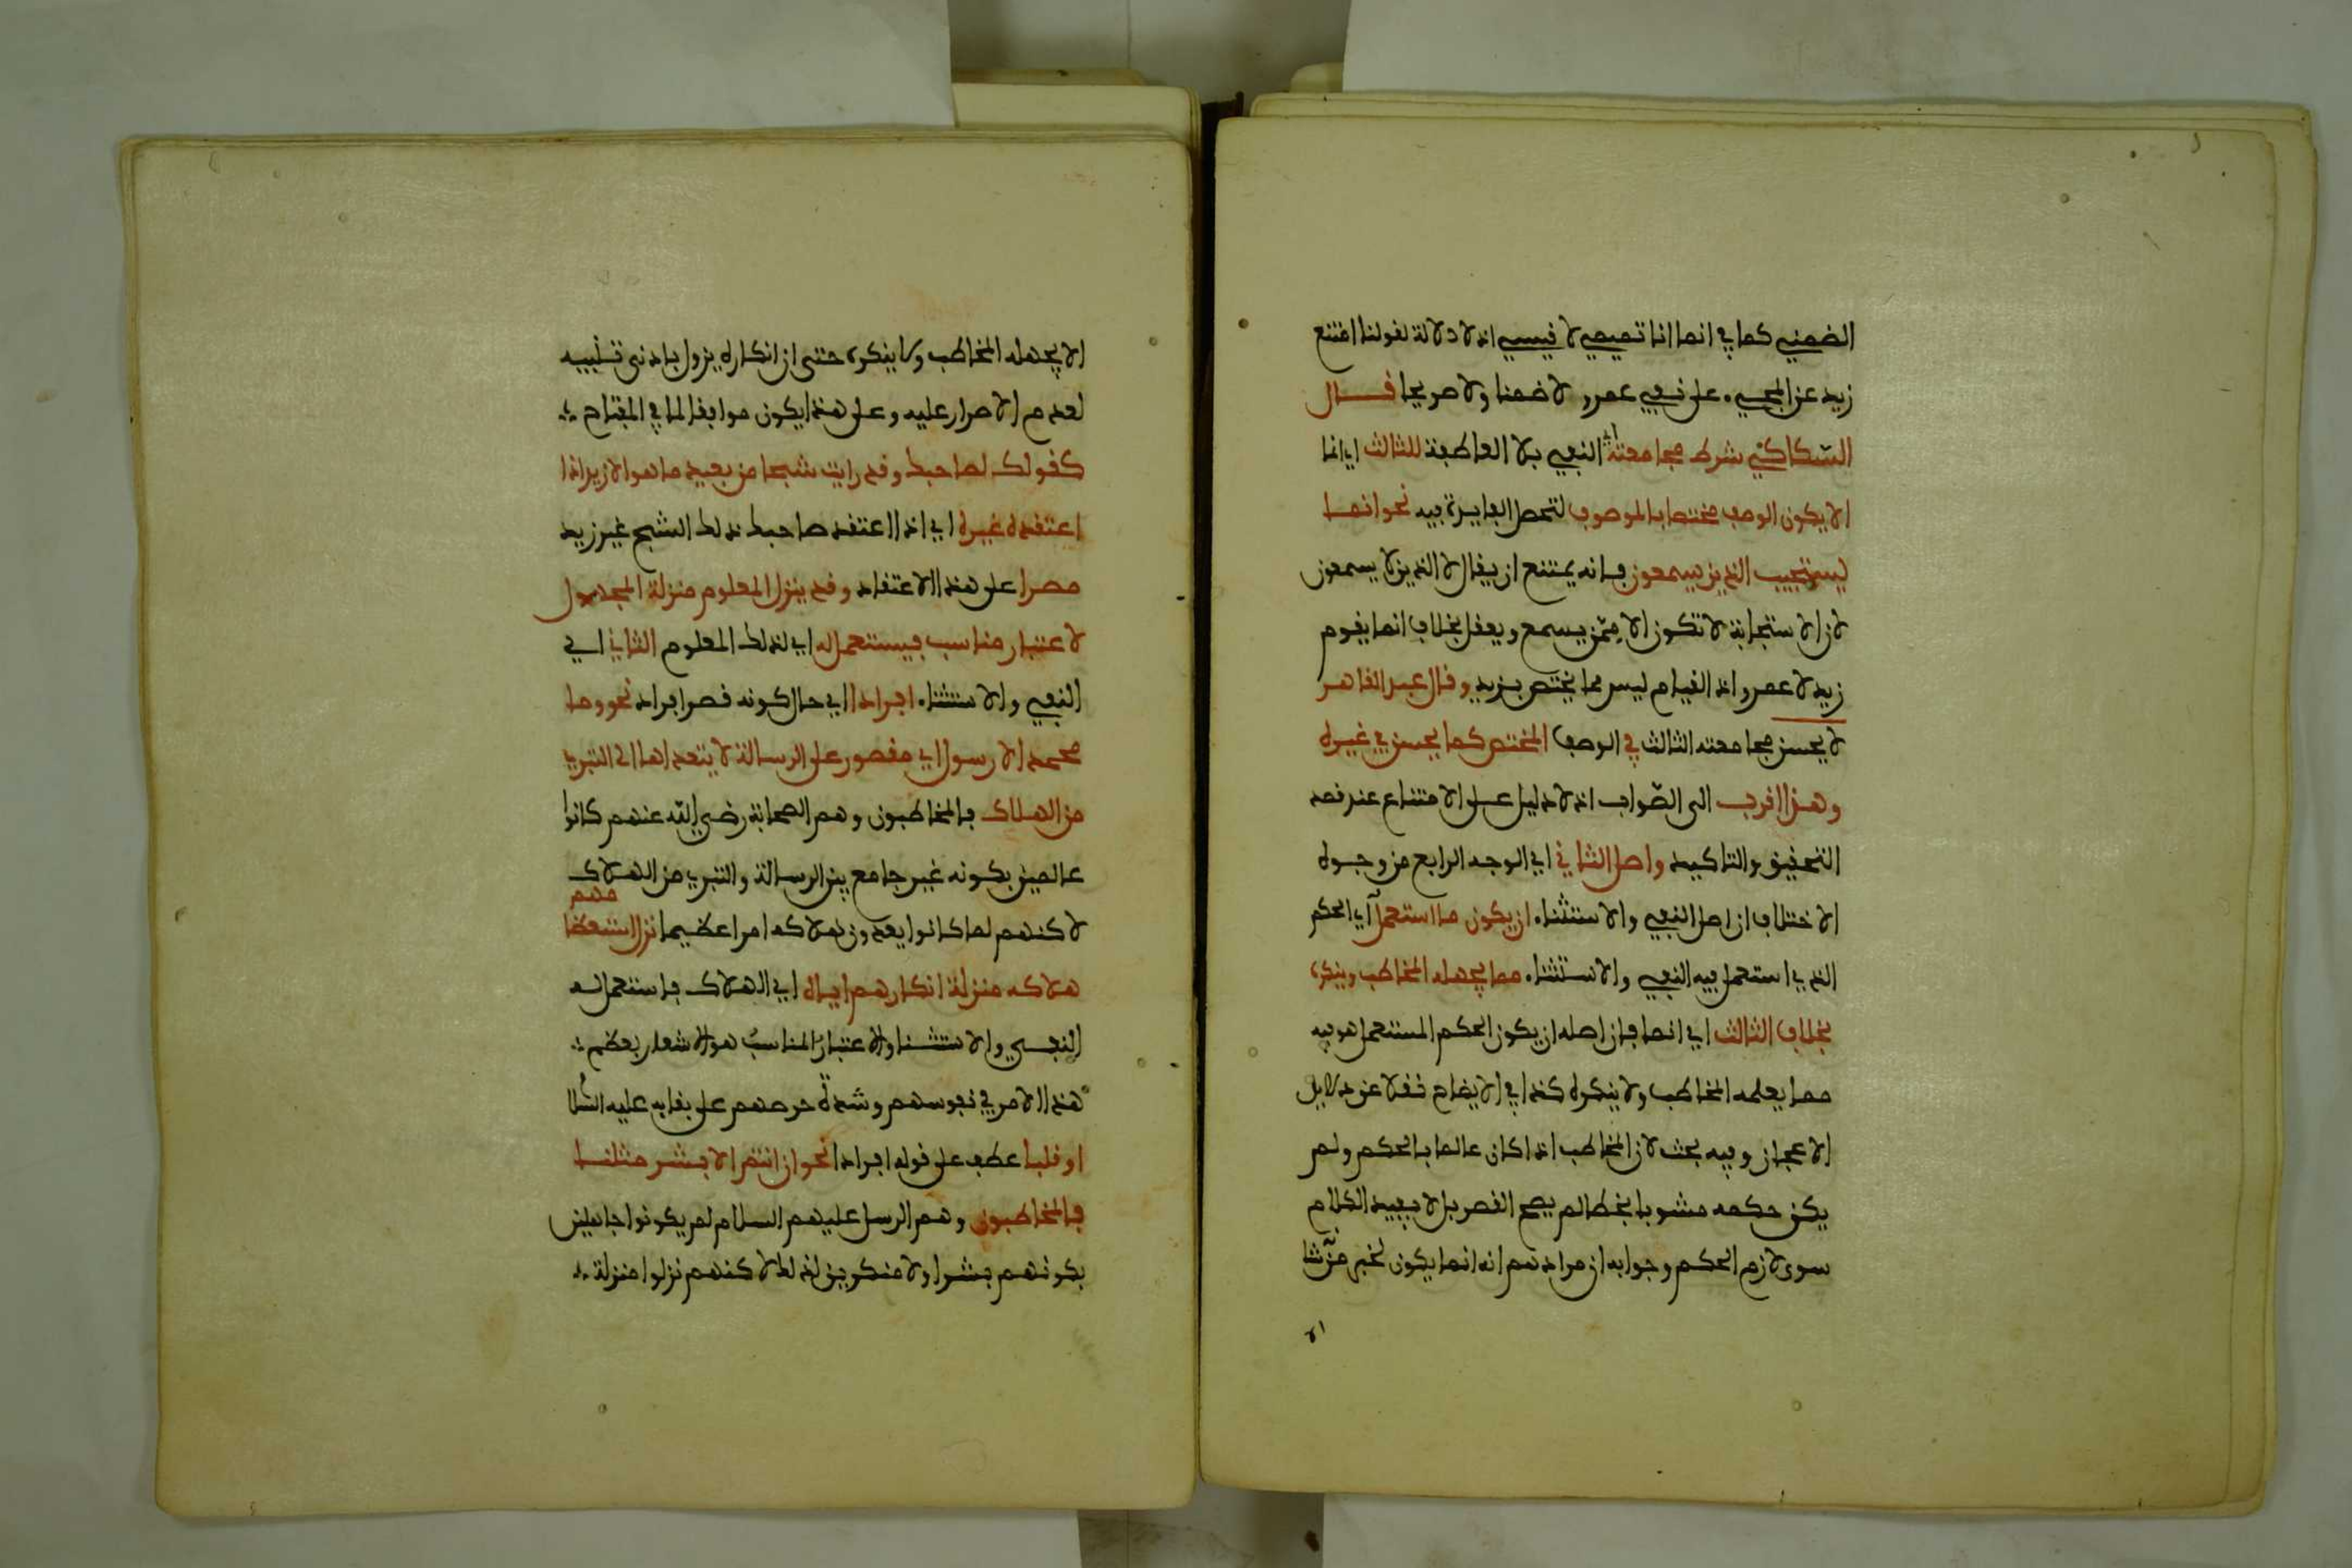 الضمني كما في انما انا تميمي لا قيسي اذ لا دلالة لقولنا امتنع
زيد عن المجيء على نفي عمرو لا ضمنا ولا صريحا قال
السكاكي شرط مجامعته اي النفي بلا العاطفة للثالث اي انما
الا يكون الوصف مختصا بالموصوف لتحصل الفايدة فيه نحو انما
يستجيب الذين يسمعون فانه يمتنع ان يقال لا الذين لا يسمعون
لان الاستجابة لا تكون الا ممن يسمع ويعقل بخلاف انما يقوم
زيد لا عمرو اذ القيام ليس مما يختص بزيد وقال عبد القاهر
لا يحسن مجامعته الثالث في الوصف المختص كما يحسن في غيره
وهذا اقرب الى الصواب اذ لا دليل على الامتناع عند قصد
التحقيق والتاكيد واصل الثاني اي الوجه الرابع من وجوه
الاختلاف ان اصل النفي والاستثناء ان يكون ما استعمل اي الحكم
الذي استعمل فيه النفي والاستثناء مما يجهله المخاطب وينكره
بخلاف الثالث اي انما فان اصله ان يكون الحكم المستعمل هو فيه
مما يعلمه المخاطب ولا ينكره كذا في الايضاح نقلا عن دلايل
الاعجاز وفيه بحث لان المخاطب اذا كان عالما بالحكم ولم
يكن حكمه مشوبا بخطا لم يصح القصر بل لا يفيد الكلام
سوى لازم الحكم وجوابه ان مرادهم انه انما يكون لخبر من شا
الا
الا يجهله المخاطب ولا ينكره حتى ان انكاره يزول بادنى تنبيه
لعدم الاصرار عليه وعلى هذا يكون موافقا لما في المفتاح
كقولك لصاحبك وقد رايت شبحا من بعيد ما هو الا زيد اذا
اعتقده غيره اي اذا اعتقد صاحبك ذلك الشبح غير زيد
مصرا على هذا الاعتقاد وقد ينزل المعلوم منزلة المجهول
لاعتبار مناسب فيستعمل له اي لذلك المعلوم الثاني اي
النفي والاستثناء افرادا اي حال كونه قصر افراد نحو وما
محمد الا رسول اي مقصور على الرسالة لا يتعداها الى التبري
من الهلاك فالمخاطبون وهم الصحابة رضي الله عنهم كانوا
عالمين بكونه غير جامع بين الرسالة والتبري من الهلاك
لاكنهم لما كانوا يعدون هلاكه امرا عظيما نزل استعظامهم
هلاكه منزلة انكارهم اياه اي الهلاك فاستعمل له
النفي والاستثنا والاعتبار المناسب هو الاشعار بعظم
هذا الامر في نفوسهم وشدة حرصهم على بقايه عليه السلا
او قلبا عطف على قوله افرادا نحو ان انتم الا بشر مثلنا
فالمخاطبون وهم الرسل عليهم السلام لم يكونوا جاهلين
بكونهم بشرا ولا منكرين لذلك لاكنهم نزلوا منزلة